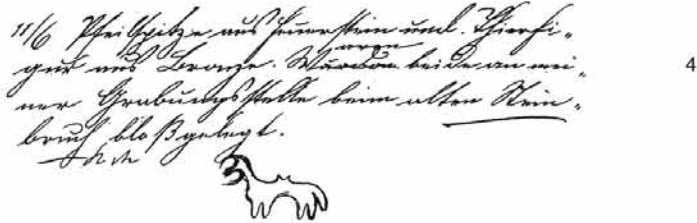 11/6 Pfeilspitze aus Feuerstein und Thierfi-
gur aus Bronze. Wurden beide an mei- 4
ner Grabungsstelle beim alten Stein-
bruch bloßgelegt.